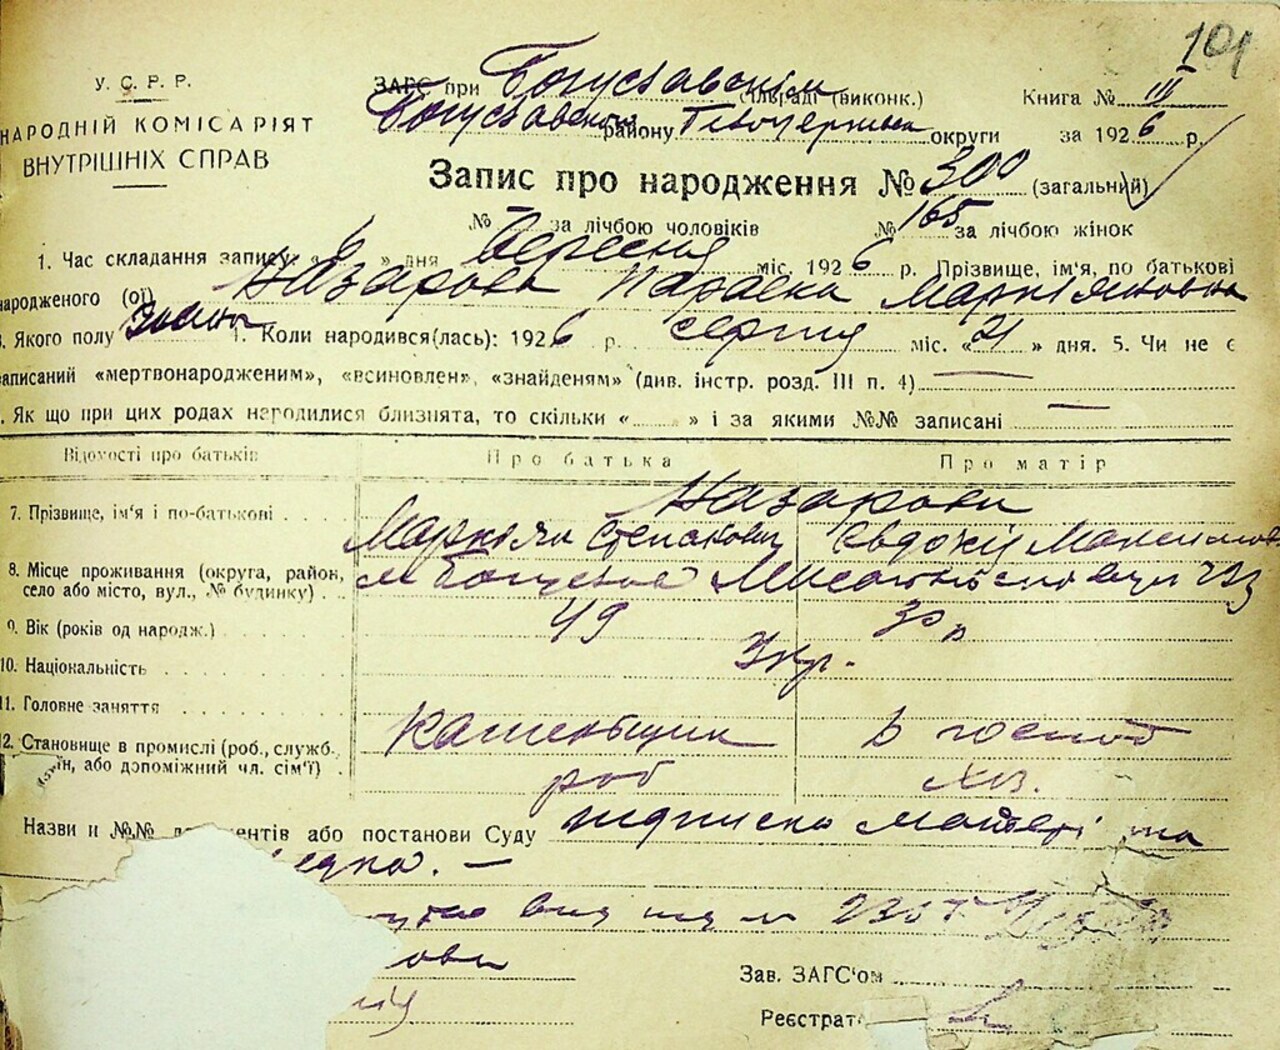 101
У. С. Р. Р.
НАРОДНІЙ КОМІСАРІЯТ
ВНУТРІШНІХ СПРАВ
ЗАГС при Богуславскім (сільраді (виконк.) Книга № III
Богуславском району Білоцерківськ округи за 1926 р.
Запис про народження № 300 (загальний)
№ — за лічбою чоловіків № 165 за лічбою жінок
1. Час складання запису: « 6 » дня Вересня міс. 1926 р. Прізвище, ім'я, по батькові
народженого (ої) Назарова Параска Маркіяновна
3. Якого полу жіноч 4. Коли народився(лась): 1926 р. серпня міс. « 21 » дня. 5. Чи не є
записаний «мертвонародженим», «всиновлен», «знайденям» (див. інстр. розд. III п. 4) —
. Як що при цих родах народилися близнята, то скільки « » і за якими №№ записані —
Відомості про батьків Про батька Про матір
7. Прізвище, ім'я і по-батькові Назарови
Маркіян Степанович Євдокія Максимов
8. Місце проживання (округа, район, село або місто, вул., № будинку) м Богуслав 233
9. Вік (років од народж.) 49 30 р
10. Національність Укр.
11. Головне заняття
Каменьщик В господ
12. Становище в промислі (роб., служб.
їн, або допоміжний чл. сім'ї) роб хоз.
Назви и №№ д ентів або постанови Суду підписка матері та
едка. —
вид під № 2307
ови
Зав. ЗАГС'ом
Реєстрат